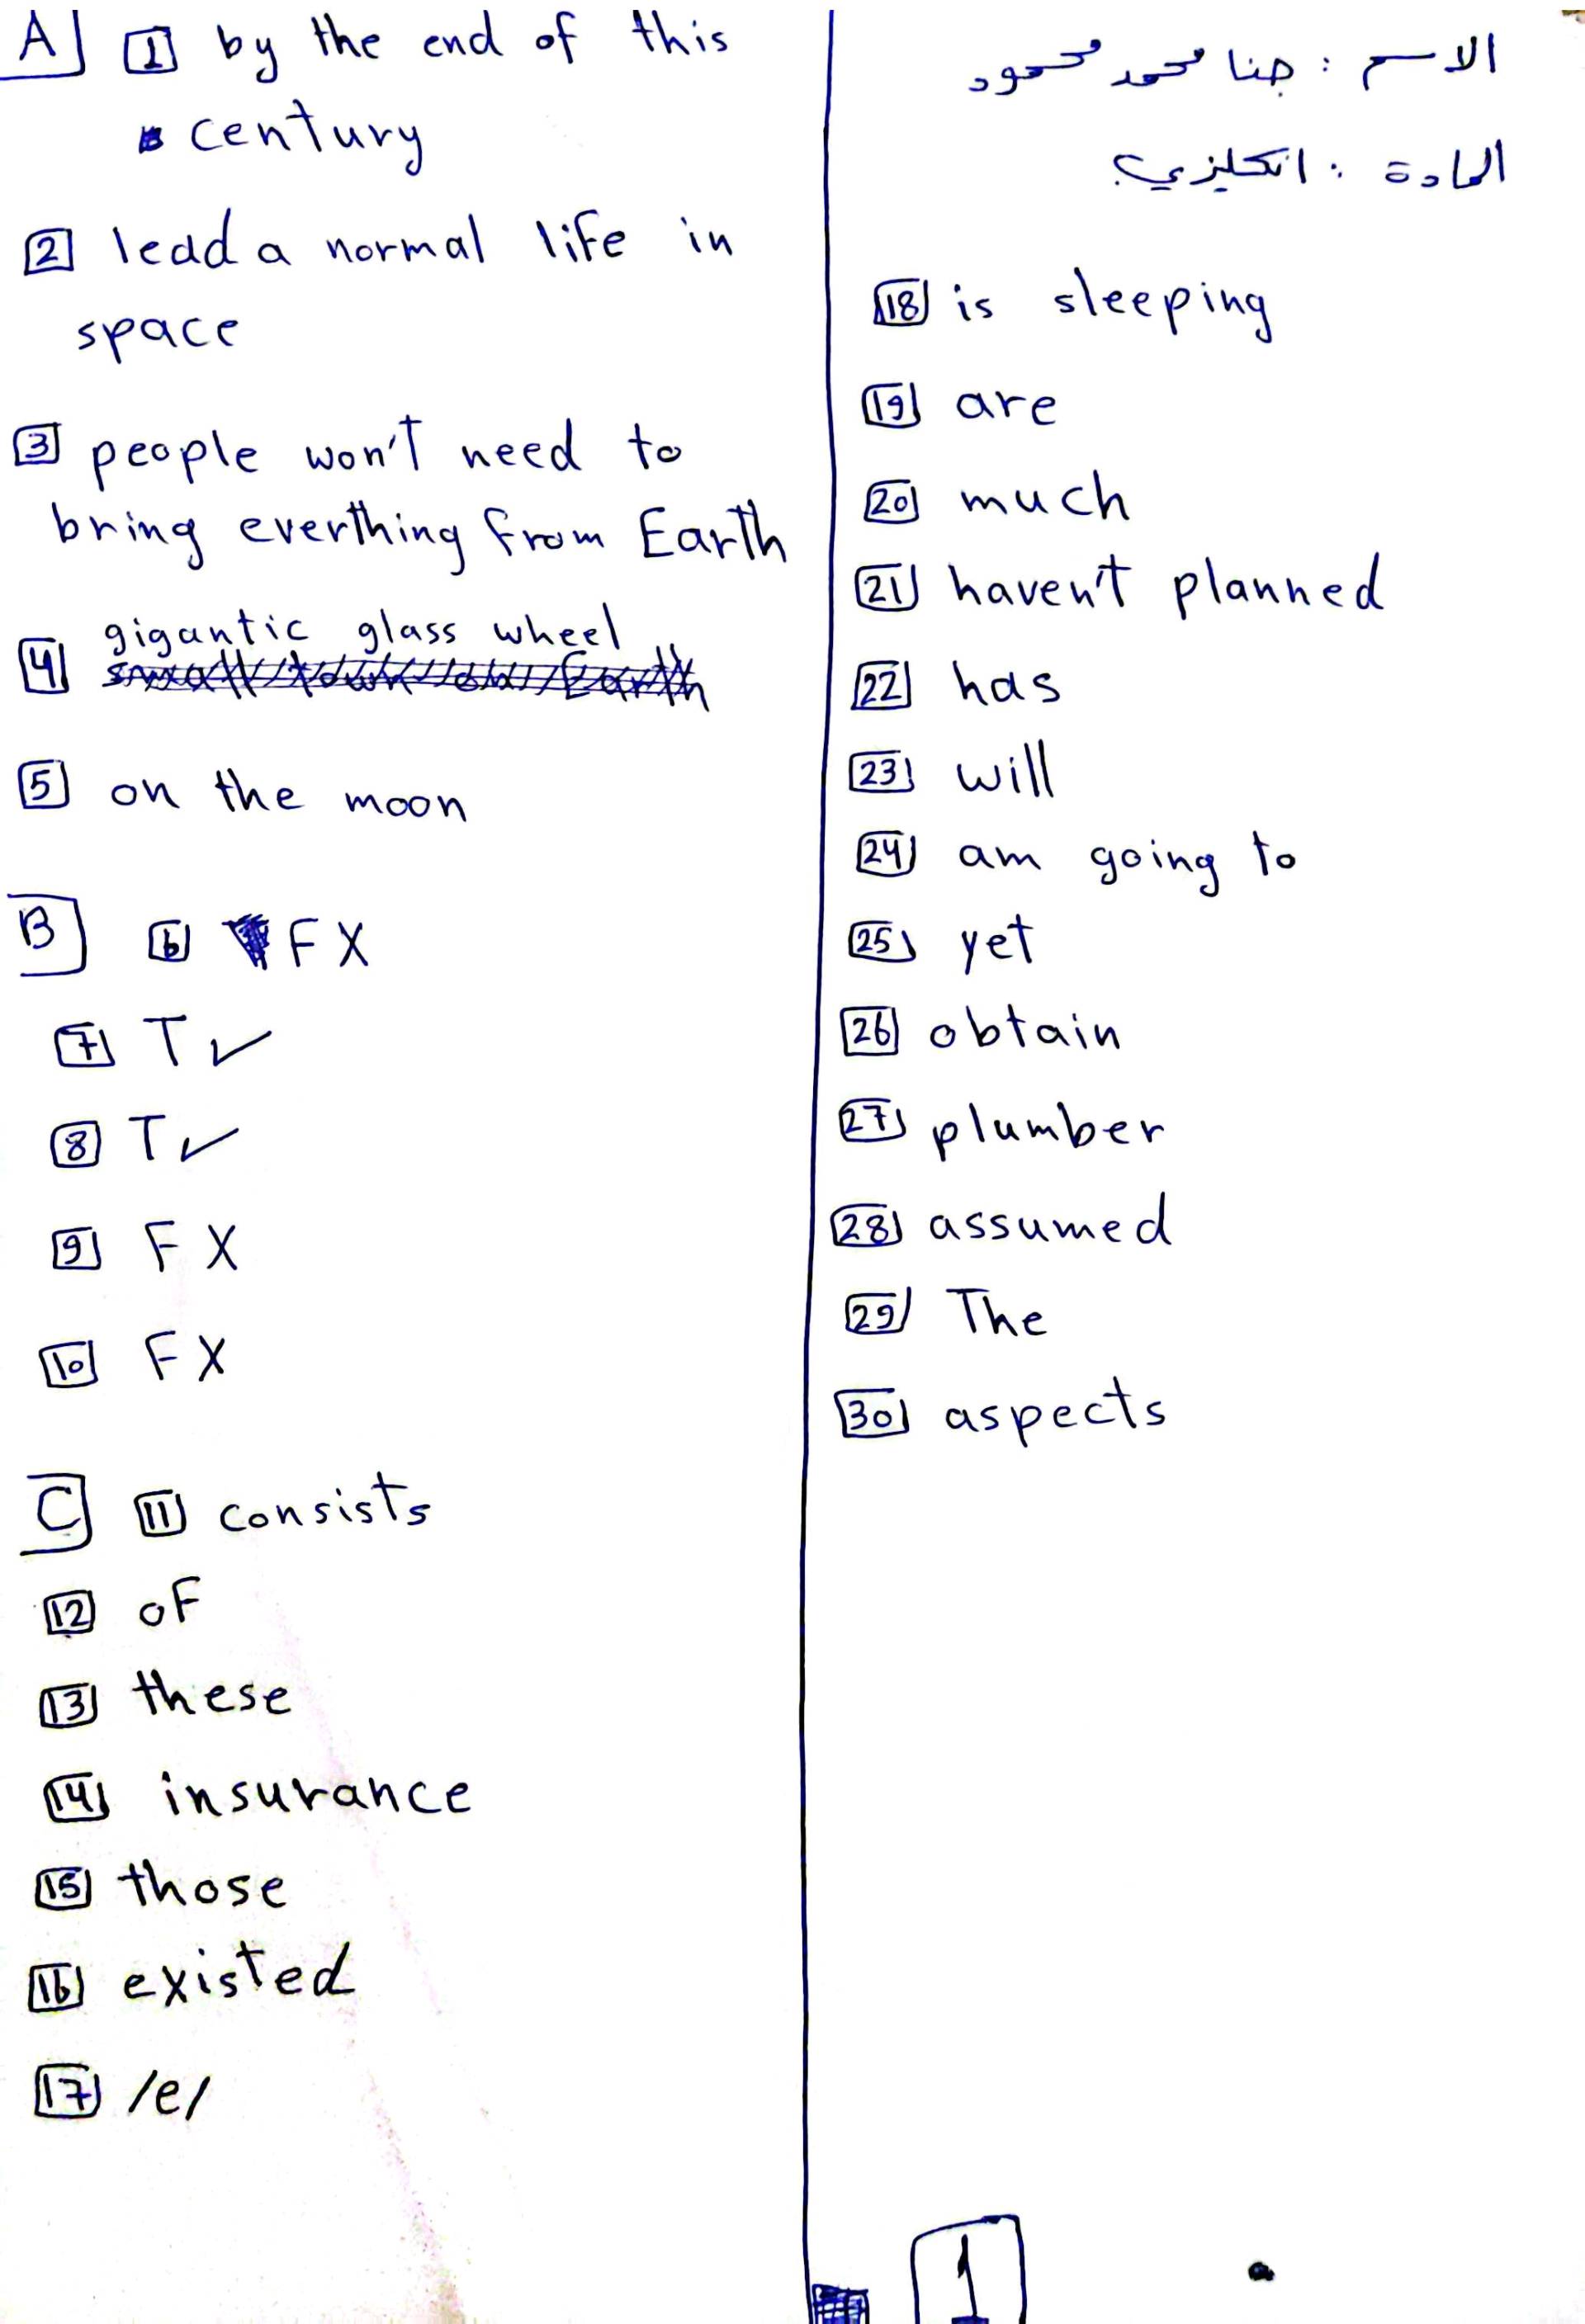 الاسم : جنا محمد محمود
المادة : انكليزي
A 1 by the end of this
century
2 lead a normal life in
space
3 people won't need to
bring everthing from Earth
4 gigantic glass wheel
5 on the moon
B 6 F X
7 T ✓
8 T ✓
9 F X
10 F X
C 11 consists
12 of
13 these
14 insurance
15 those
16 existed
17 /e/
18 is sleeping
19 are
20 much
21 haven't planned
22 has
23 will
24 am going to
25 yet
26 obtain
27 plumber
28 assumed
29 The
30 aspects
1